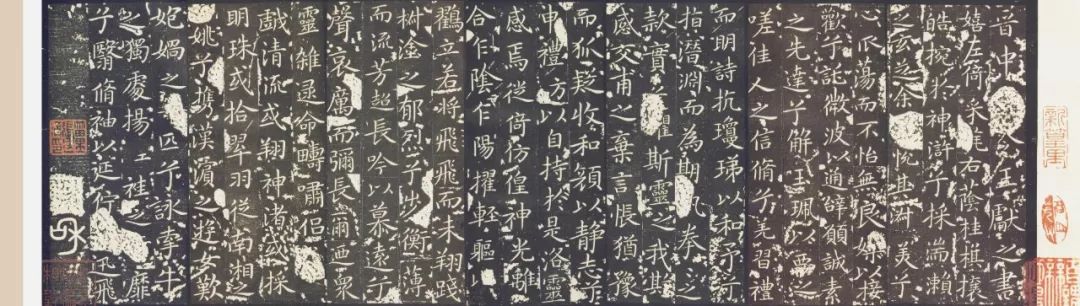 晉中書令王獻之書
嬉左倚采旄右蔭桂旗攘
皓捥於神滸兮採湍瀨
之玄芝余悅其淑美兮
心振蕩而不怡無良媒以接
歡兮託微波以通辭願誠素
之先達兮解玉珮以要之
嗟佳人之信脩兮羌習禮
而明詩抗瓊珶以和予兮
指潛淵而為期執拳拳之
款實兮懼斯靈之我欺
感交甫之棄言悵猶豫
而狐疑收和顏以靜志兮
申禮防以自持於是洛靈
感焉徙倚仿偟神光離
合乍陰乍陽擢輕軀以
鶴立若將飛而未翔踐
椒塗之郁烈兮步衡薄
而流芳超長吟以慕遠兮
聲哀厲而彌長爾迺眾
靈雜遝命疇嘯侶或
戲清流或翔神渚或採
明珠或拾翠羽從南湘之
二姚兮攜漢濱之遊女歎
妃媧之匹兮詠牽牛
之獨處揚輕袿之靡
兮翳脩袖以延佇迅飛